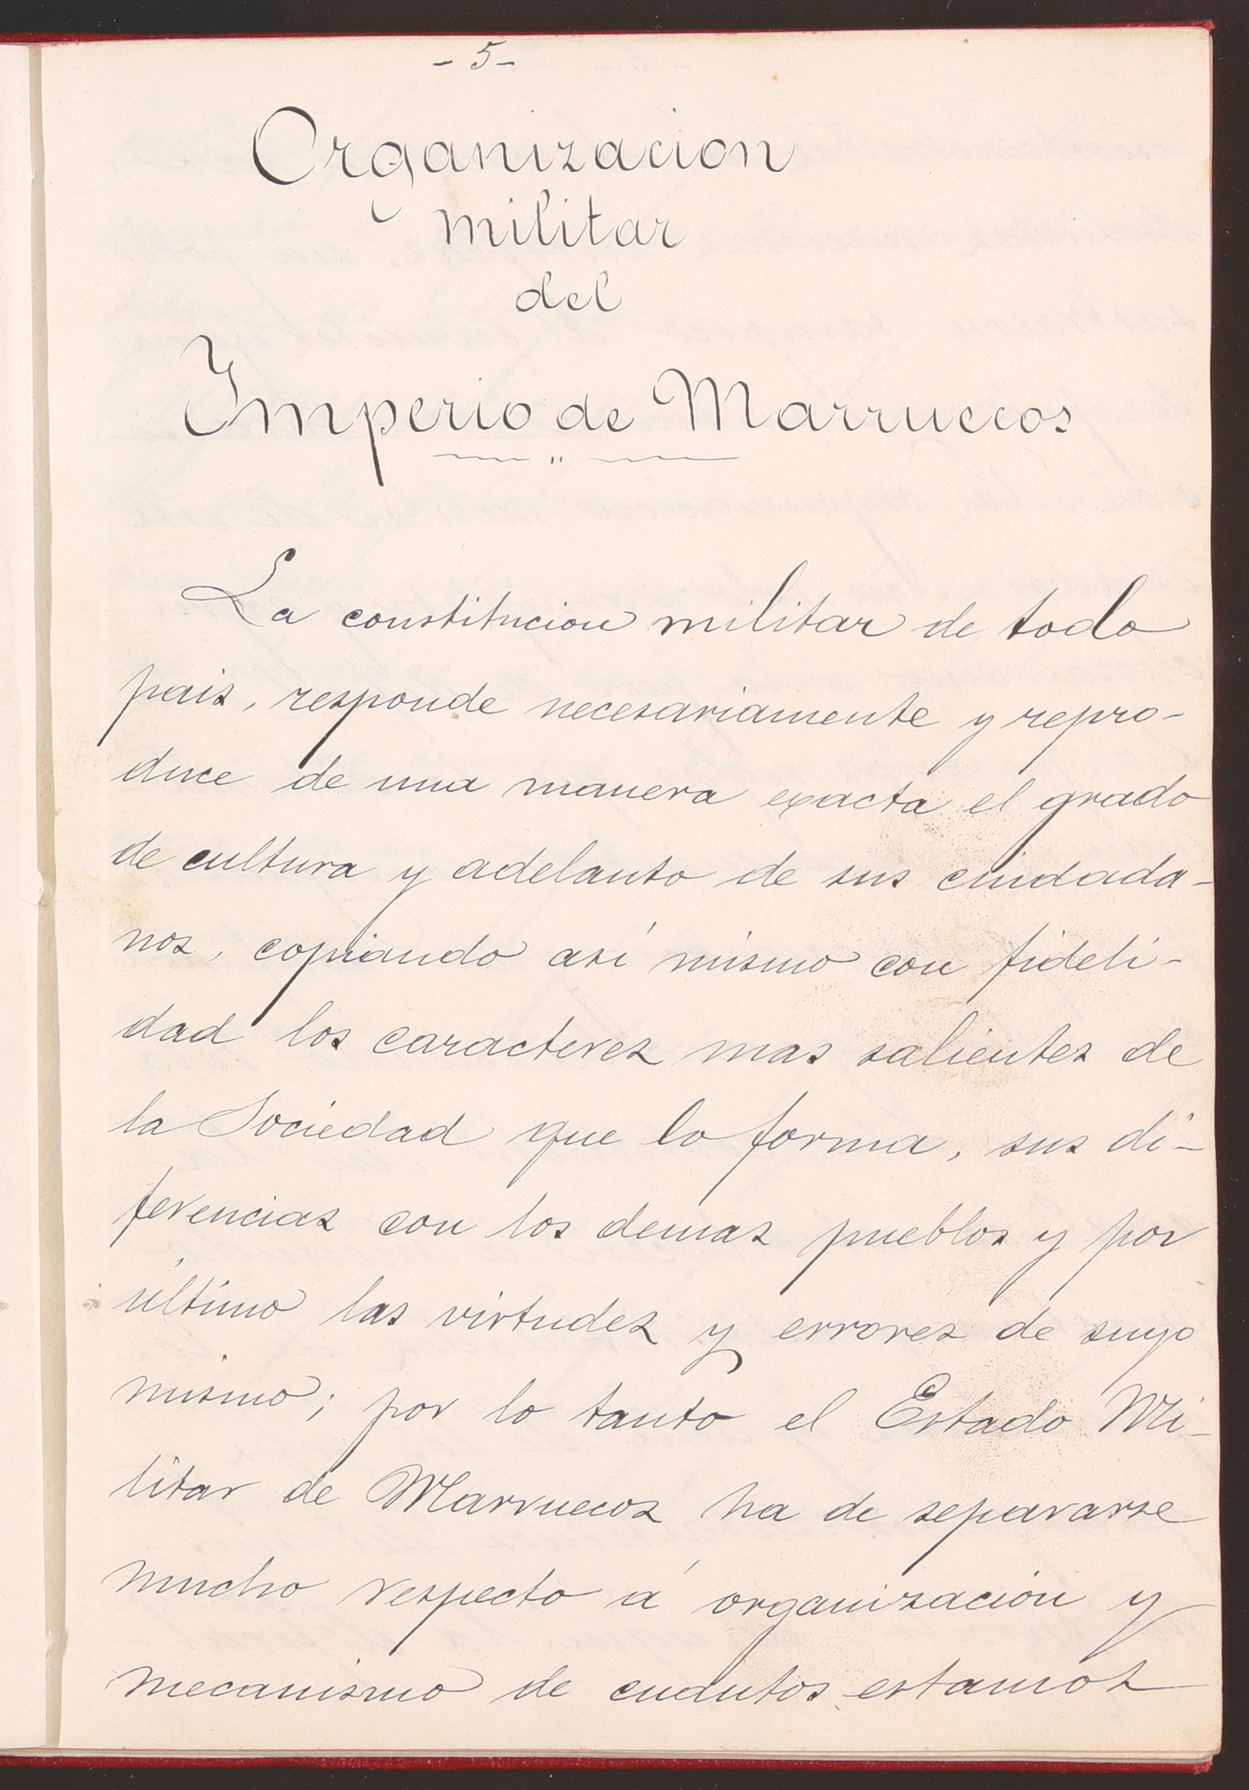 - 5 -
Organizacion
militar
del
Imperio de Marruecos
La constitucion militar de todo
pais, responde necesariamente y repro-
duce de una manera exacta el grado
de cultura y adelanto de sus ciudada-
nos, copiando así mismo con fideli-
dad los caracteres mas salientes de
la Sociedad que lo forma, sus di-
ferencias con los demas pueblos y por
último las virtudes y errores de suyo
mismo; por lo tanto el Estado Mi-
litar de Marruecos ha de separarse
mucho respecto á organización y
mecanismo de cuantos estamos